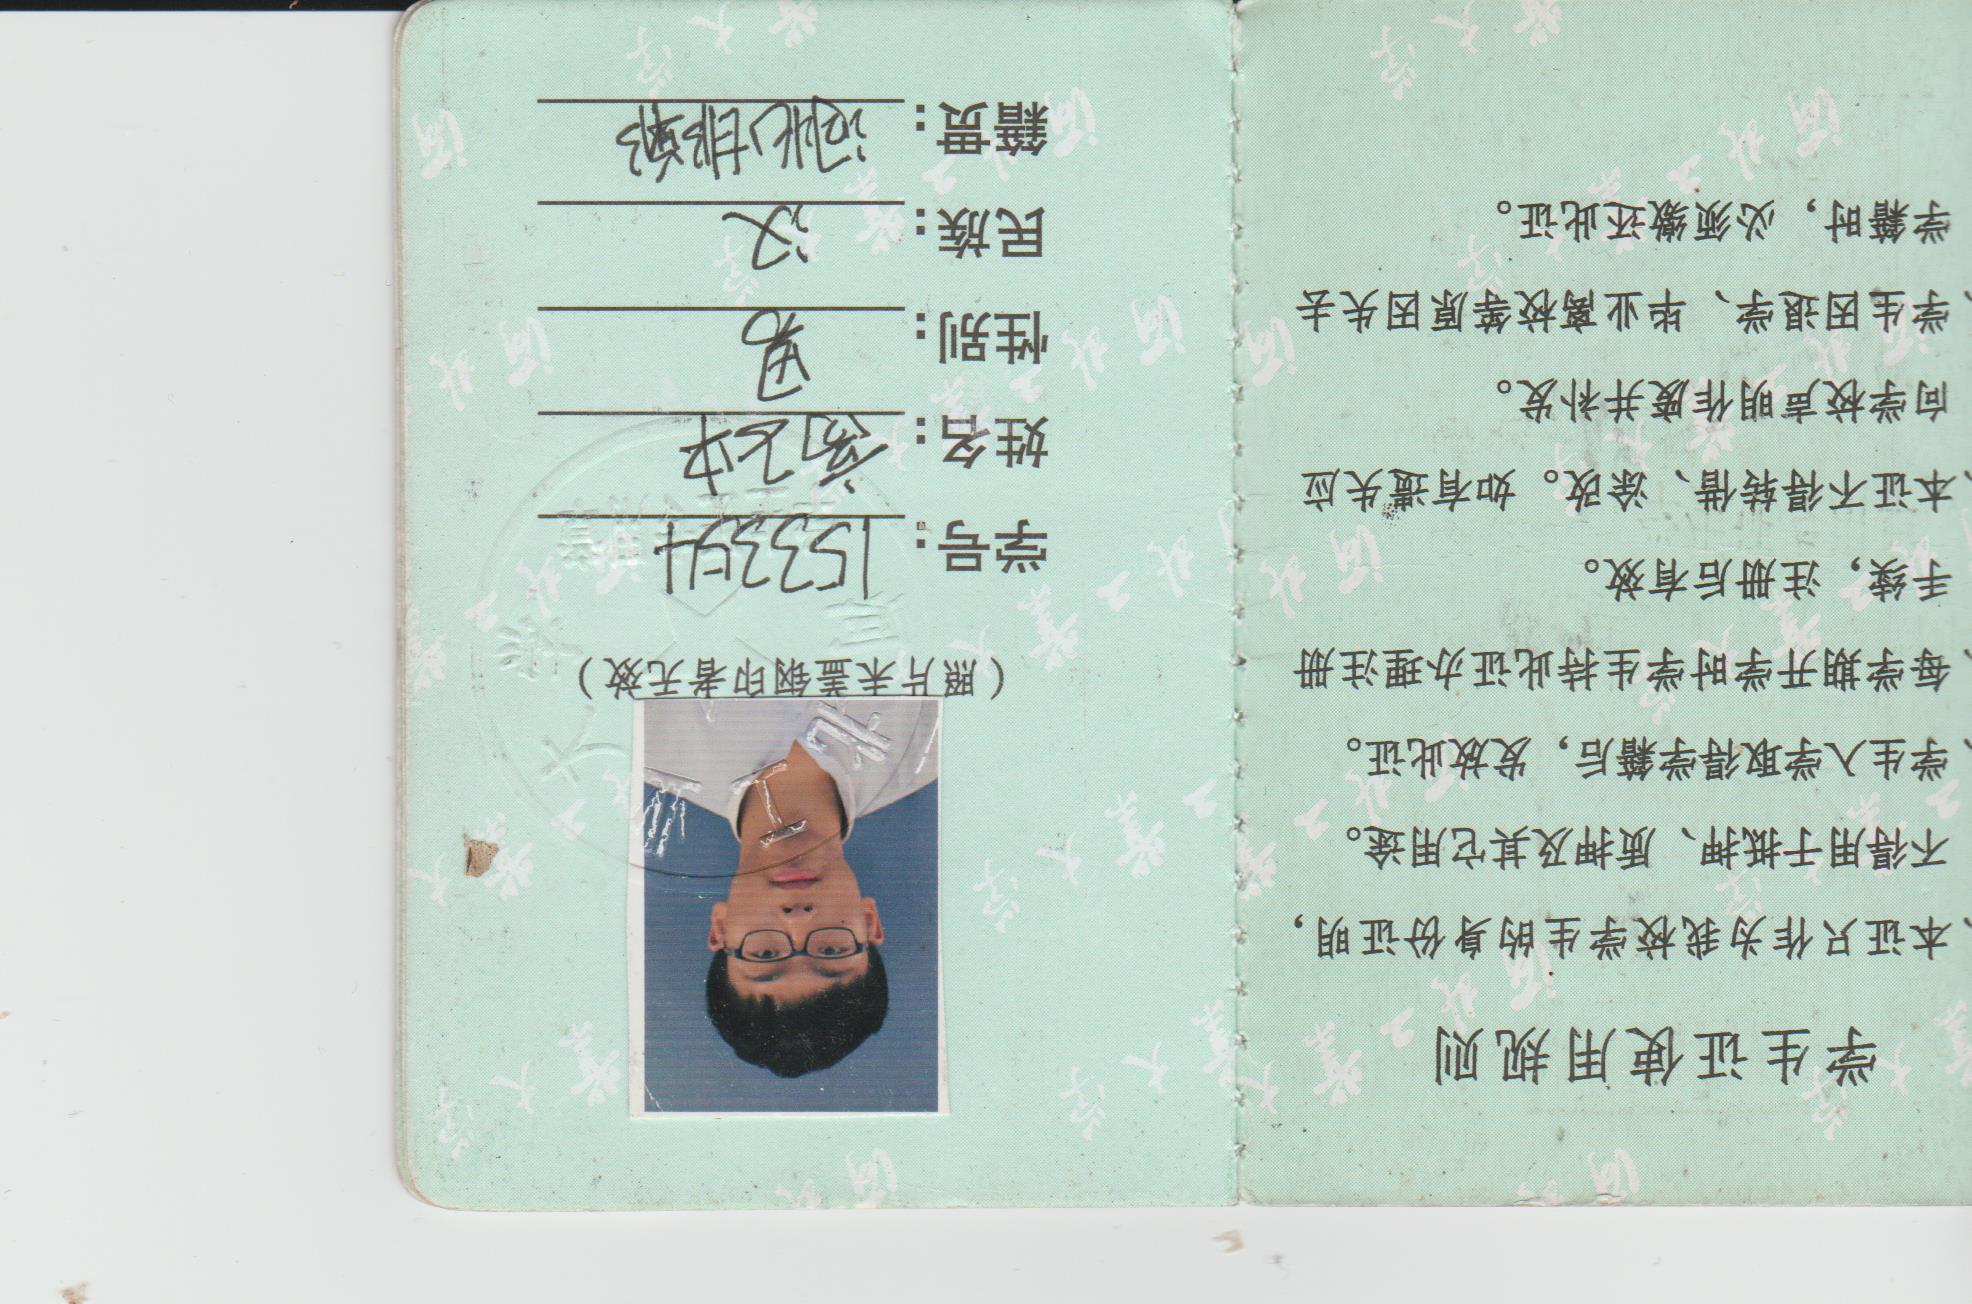 学生证使用规则
、本证只作为我校学生的身份证明，
不得用于抵押、质押及其它用途。
、学生入学取得学籍后，发放此证。
、每学期开学时学生持此证办理注册
手续，注册后有效。
、本证不得转借、涂改。如有遗失应
向学校声明作废并补发。
、学生因退学、毕业离校等原因失去
学籍时，必须缴还此证。
（照片未盖钢印者无效）
学号：153354
姓名：高飞中
性别：男
民族：汉
籍贯：河北邯郸
河北工业大学